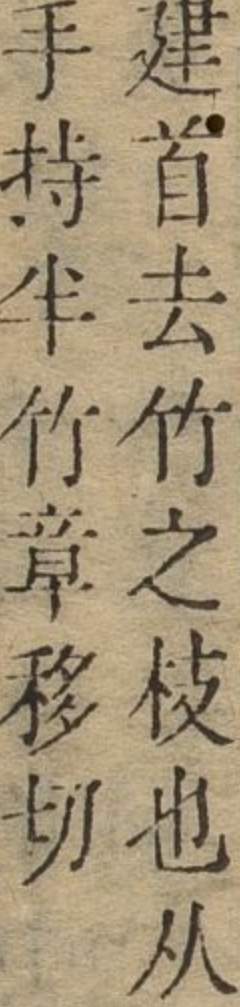 建首去竹之枝也从
手持半竹章移切